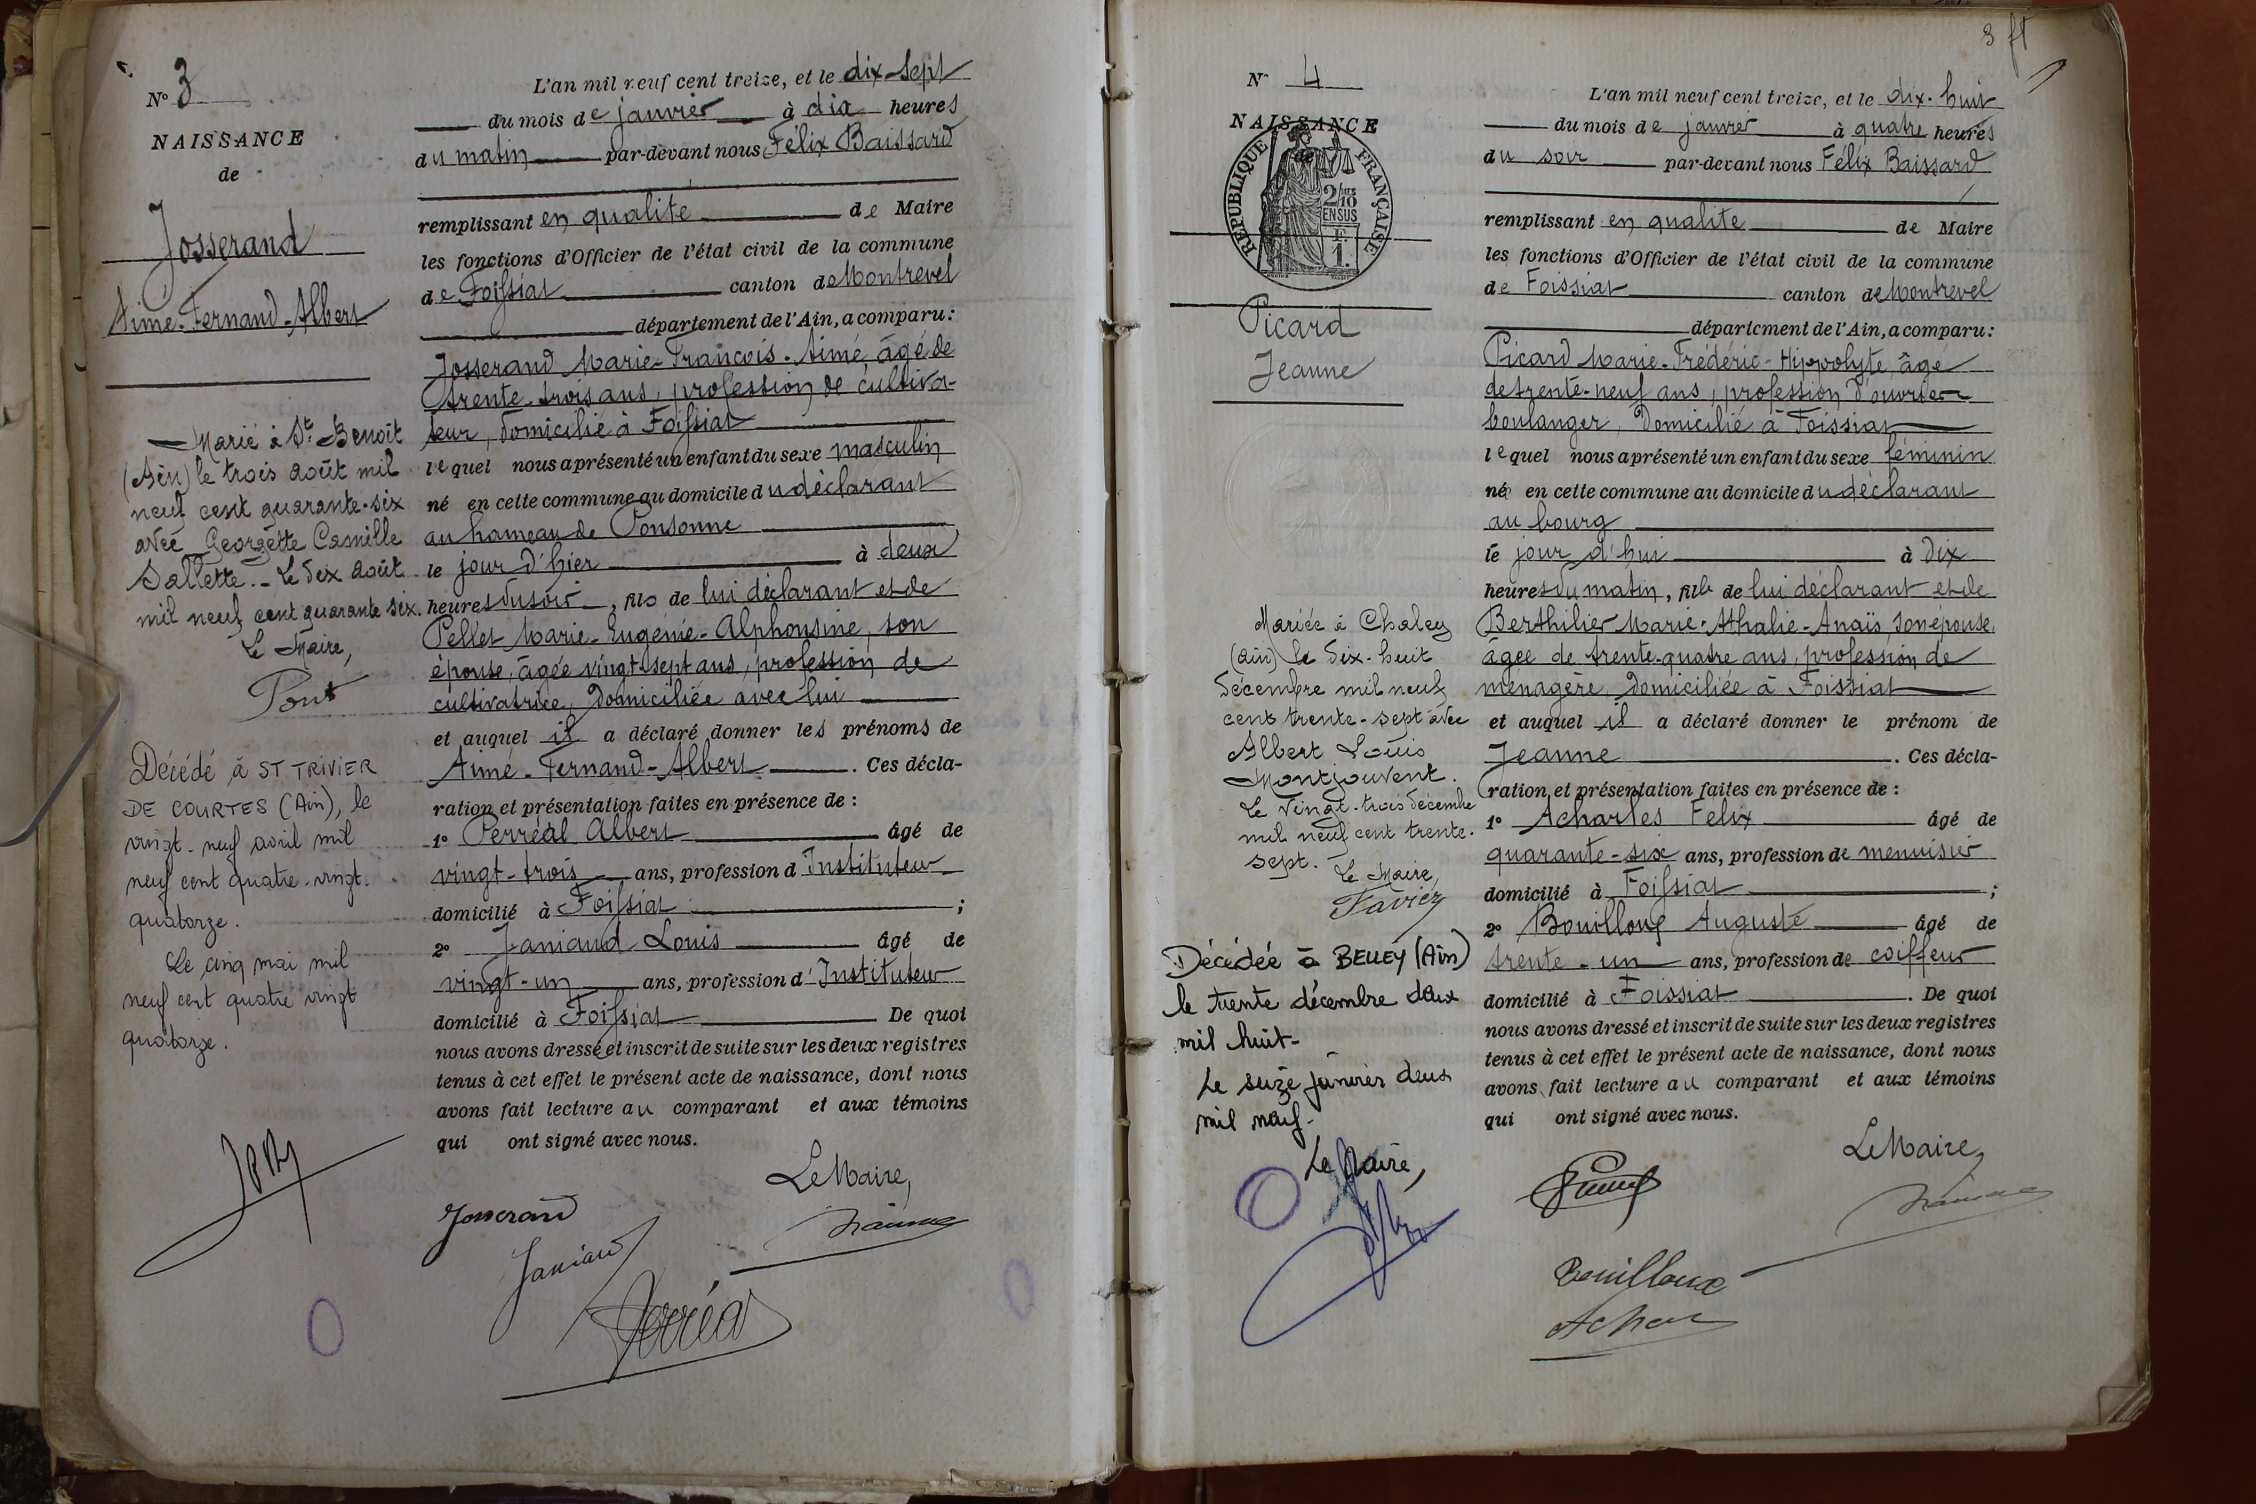 N° 3
NAISSANCE
de
Josserand
Aimé-Fernand-Albert
Marié à St Benoît
(Ain) le trois août mil
neuf cent quarante-six
avec Georgette Camille
Sallette.- Le dix août
mil neuf cent quarante six.
Le Maire,
Pont
Décédé à ST TRIVIER
DE COURTES (Ain), le
vingt-neuf avril mil
neuf cent quatre-vingt-
quatorze.
Le cinq mai mil
neuf cent quatre vingt
quatorze.
L'an mil neuf cent treize, et le dix-sept
du mois de janvier à dix heures
du matin par-devant nous Félix Baissard
remplissant en qualité de Maire
les fonctions d'Officier de l'état civil de la commune
de Foissiat canton de Montrevel
département de l'Ain, a comparu:
Josserand Marie-François-Aimé âgé de
trente-trois ans, profession de cultiva-
teur, domicilié à Foissiat
lequel nous a présenté un enfant du sexe masculin
né en cette commune au domicile du déclarant
au hameau de Ponsonne
le jour d'hier à deux
heures du soir, fils de lui déclarant et de
Pellet Marie-Eugénie-Alphonsine, son
épouse, âgée vingt-sept ans, profession de
cultivatrice, domiciliée avec lui
et auquel il a déclaré donner les prénoms de
Aimé-Fernand-Albert. Ces décla-
ration et présentation faites en présence de :
1° Perréal Albert âgé de
vingt-trois ans, profession d'Instituteur
domicilié à Foissiat ;
2° Janiaud Louis âgé de
vingt-un ans, profession d'Instituteur
domicilié à Foissiat De quoi
nous avons dressé et inscrit de suite sur les deux registres
tenus à cet effet le présent acte de naissance, dont nous
avons fait lecture au comparant et aux témoins
qui ont signé avec nous.
Le Maire,
Josserand
Janiaud
Perréal
3 ft
N° 4
NAISSANCE
de
RÉPUBLIQUE FRANÇAISE
2/10
EN SUS
F.
1.
Picard
Jeanne
Mariée à Chaley
(Ain) le dix-huit
décembre mil neuf
cent trente-sept avec
Albert Louis
Montjouvent.
Le vingt-trois décembre
mil neuf cent trente-
sept.
Le Maire,
Favier
Décédée à BELLEY (Ain)
le trente décembre deux
mil huit-
Le seize janvier deux
mil neuf-
Le Maire,
L'an mil neuf cent treize, et le dix-huit
du mois de janvier à quatre heures
du soir par-devant nous Félix Baissard
remplissant en qualité de Maire
les fonctions d'Officier de l'état civil de la commune
de Foissiat canton de Montrevel
département de l'Ain, a comparu:
Picard Marie-Frédéric-Hippolyte âgé
de trente-neuf ans, profession d'ouvrier
boulanger, domicilié à Foissiat
lequel nous a présenté un enfant du sexe féminin
né en cette commune au domicile du déclarant
au bourg
le jour d'hui à dix
heures du matin, fille de lui déclarant et de
Berthilier Marie-Athalie-Anaïs, son épouse,
âgée de trente-quatre ans, profession de
ménagère, domiciliée à Foissiat
et auquel il a déclaré donner le prénom de
Jeanne. Ces décla-
ration et présentation faites en présence de :
1° Acharles Félix âgé de
quarante-six ans, profession de menuisier
domicilié à Foissiat ;
2° Bouilloux Auguste âgé de
trente-un ans, profession de coiffeur
domicilié à Foissiat. De quoi
nous avons dressé et inscrit de suite sur les deux registres
tenus à cet effet le présent acte de naissance, dont nous
avons fait lecture au comparant et aux témoins
qui ont signé avec nous.
Le Maire,
Bouilloux